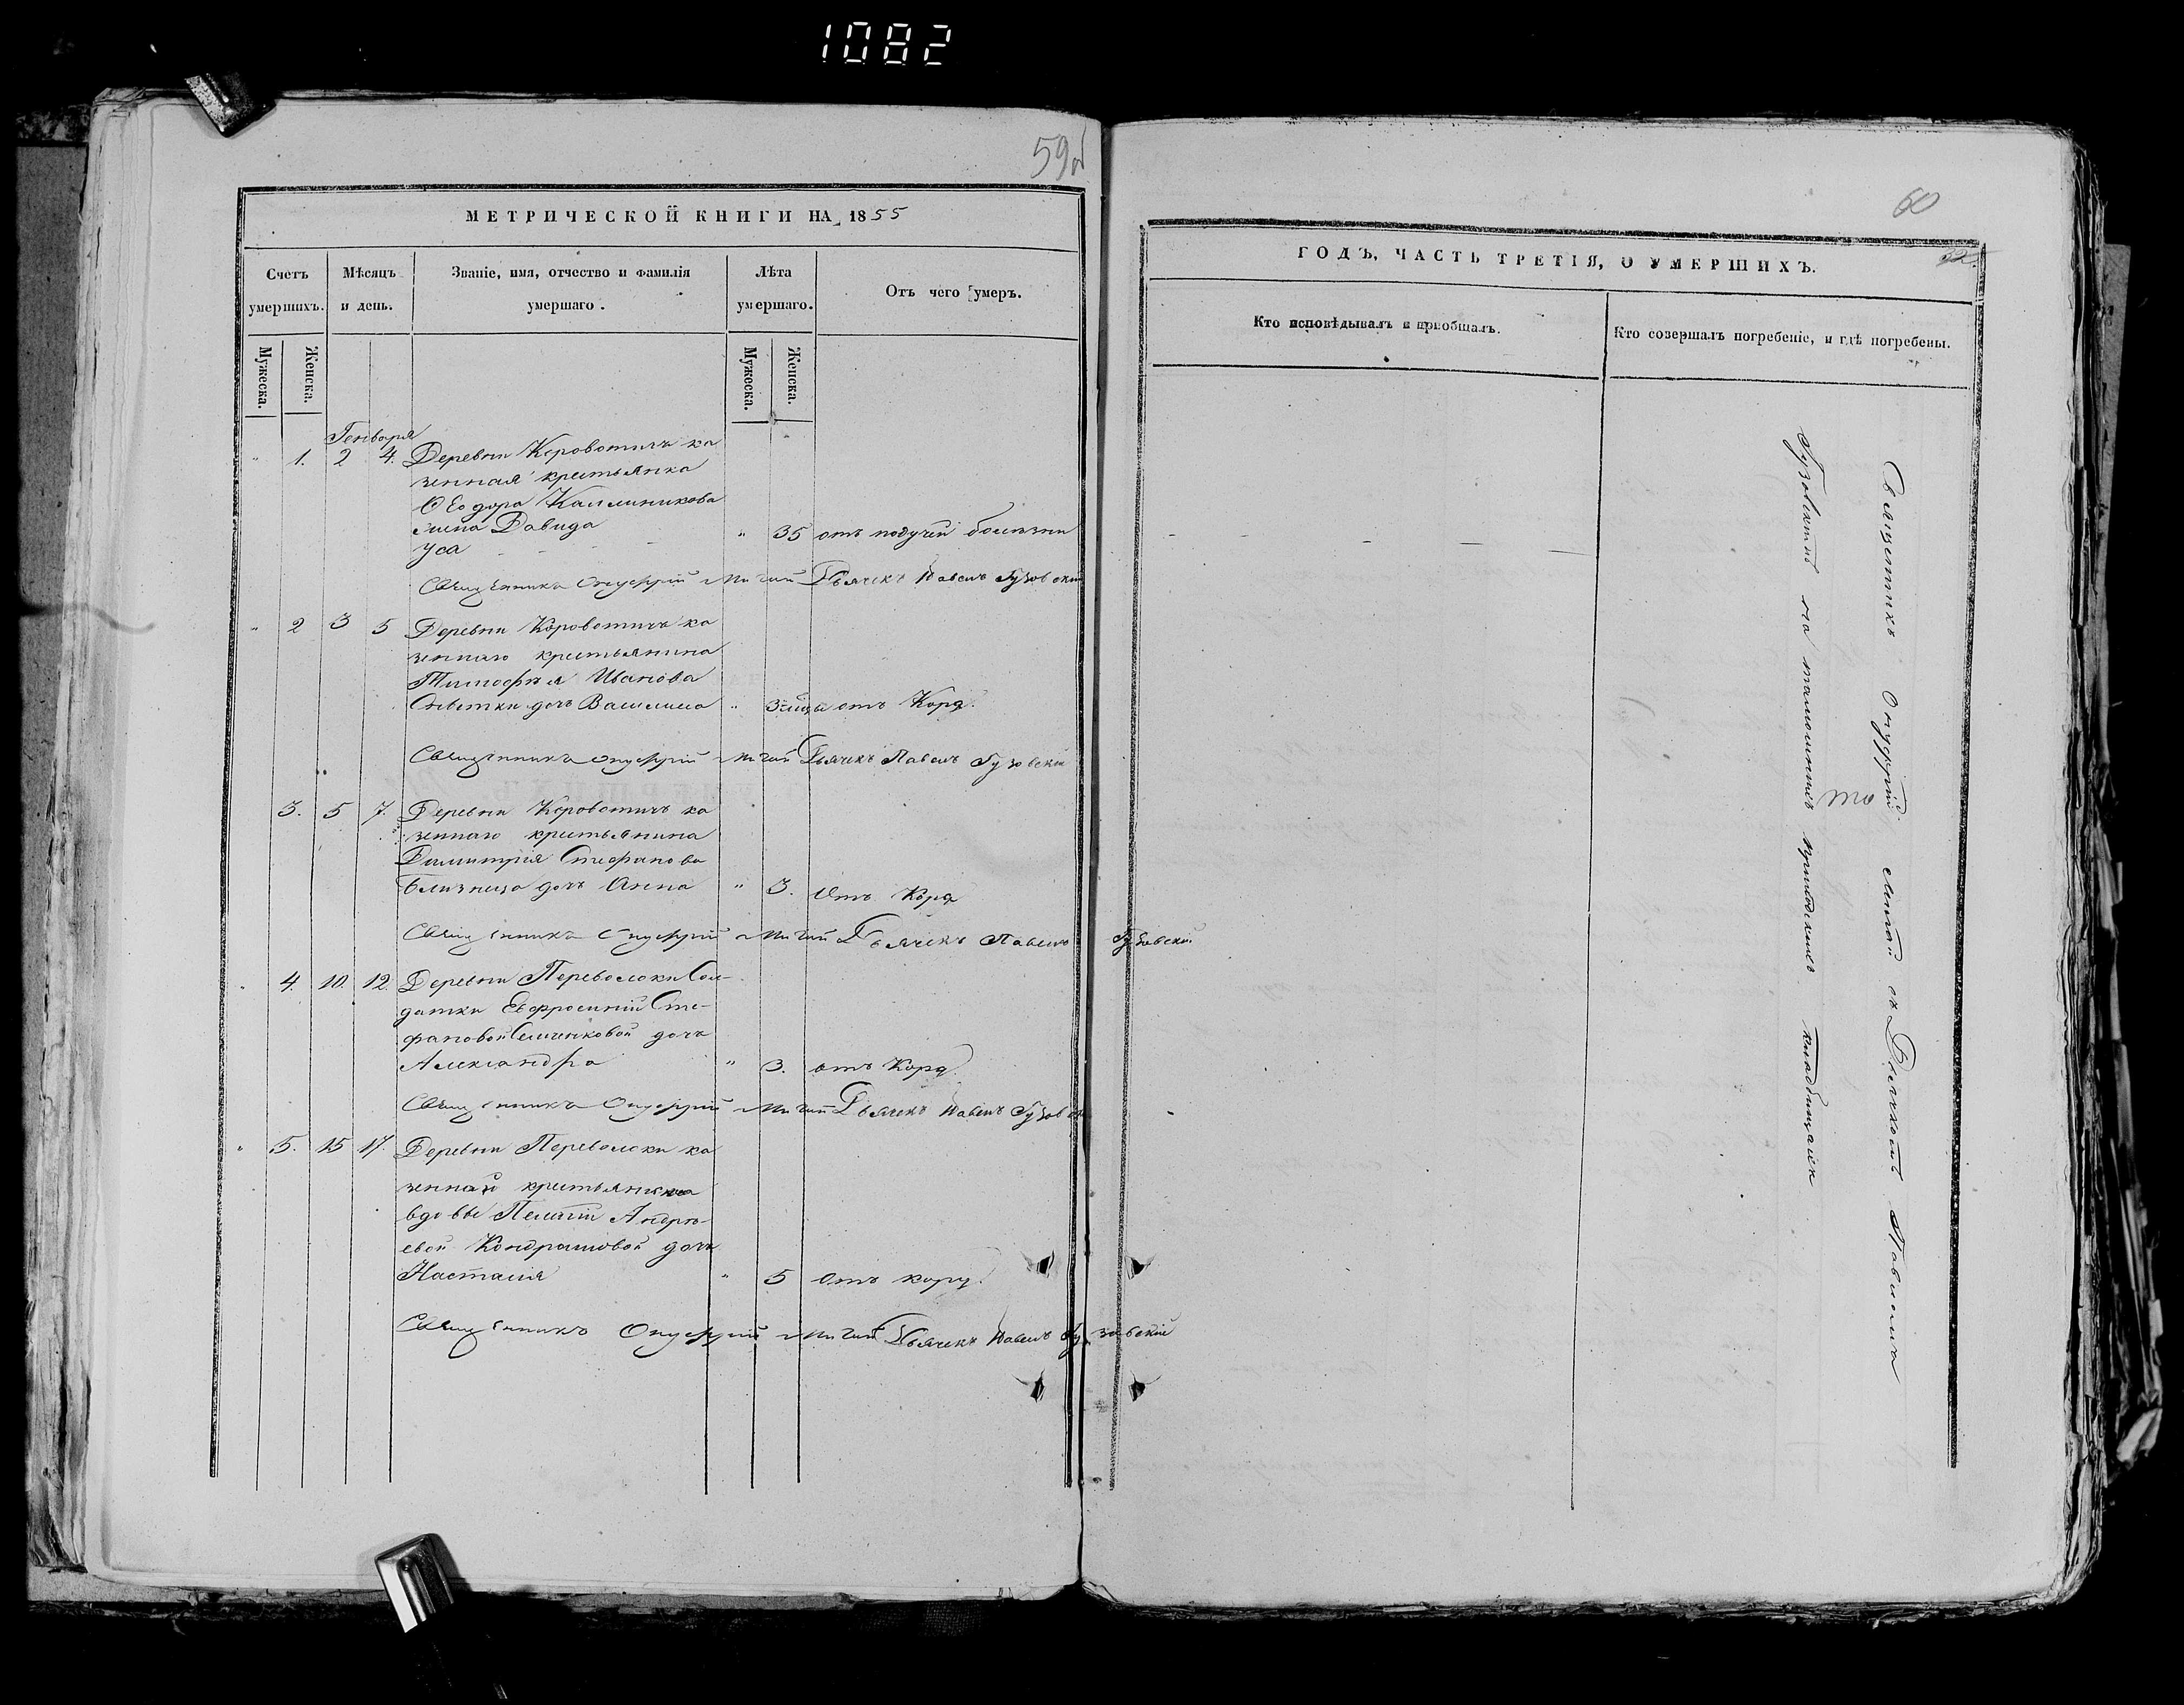 1082
59об
МЕТРИЧЕСКОЙ КНИГИ НА 1855
Счетъ умершихъ.
Мѣсяцъ и день.
Званіе, имя, отчество и фамилія умершаго.
Лѣта умершаго.
Отъ чего умеръ.
Мужеска.
Женска.
Мужеска.
Женска.
Генваря
" 1. 2 4. Деревни Короватичъ ка
зенная крестьянка
Ѳеодора Калиникова
жена Давида
Уса " 35 отъ падучей болезни
Священникъ Онуфрій Дьячекъ Павелъ Гузовскій
" 2 3 5 Деревни Короватичъ ка
зеннаго крестьянина
Тимофѣя Иванова
дочь Василиса " отъ Кору.
Священникъ Онуфрій Дьячекъ Павелъ Гузовскій
3. 5 7. Деревни Короватичъ ка
зеннаго крестьянина
Димитрія Стефанова
Близнеца дочь Анна " 3. Отъ Кору
Священникъ Онуфрій Дьячекъ Павелъ Гузовскій
" 4. 10. 12. Деревни Переволоки Сол-
датки Евфросиніи Сте-
фановой дочь
Александра " 3. отъ Кору.
Священникъ Онуфрій Дьячекъ Павелъ Гузовскій
" 5. 15 17. Деревни Переволоки ка
зенной крестьянки
вдовы Пелагіи Андрѣ-
евой Кондрашовой дочь
Настасія " 5 Отъ кору.
Священникъ Онуфрій Дьячекъ Павелъ Гузовскій
60
ГОДЪ, ЧАСТЬ ТРЕТІЯ, О УМЕРШИХЪ.
Кто исповѣдывалъ и пріобщалъ.
Кто совершалъ погребеніе, и гдѣ погребены.
Священникъ Онуфрій съ Дьячкомъ Павеломъ
Гузовскимъ на тамошнихъ приходскихъ кладбищахъ